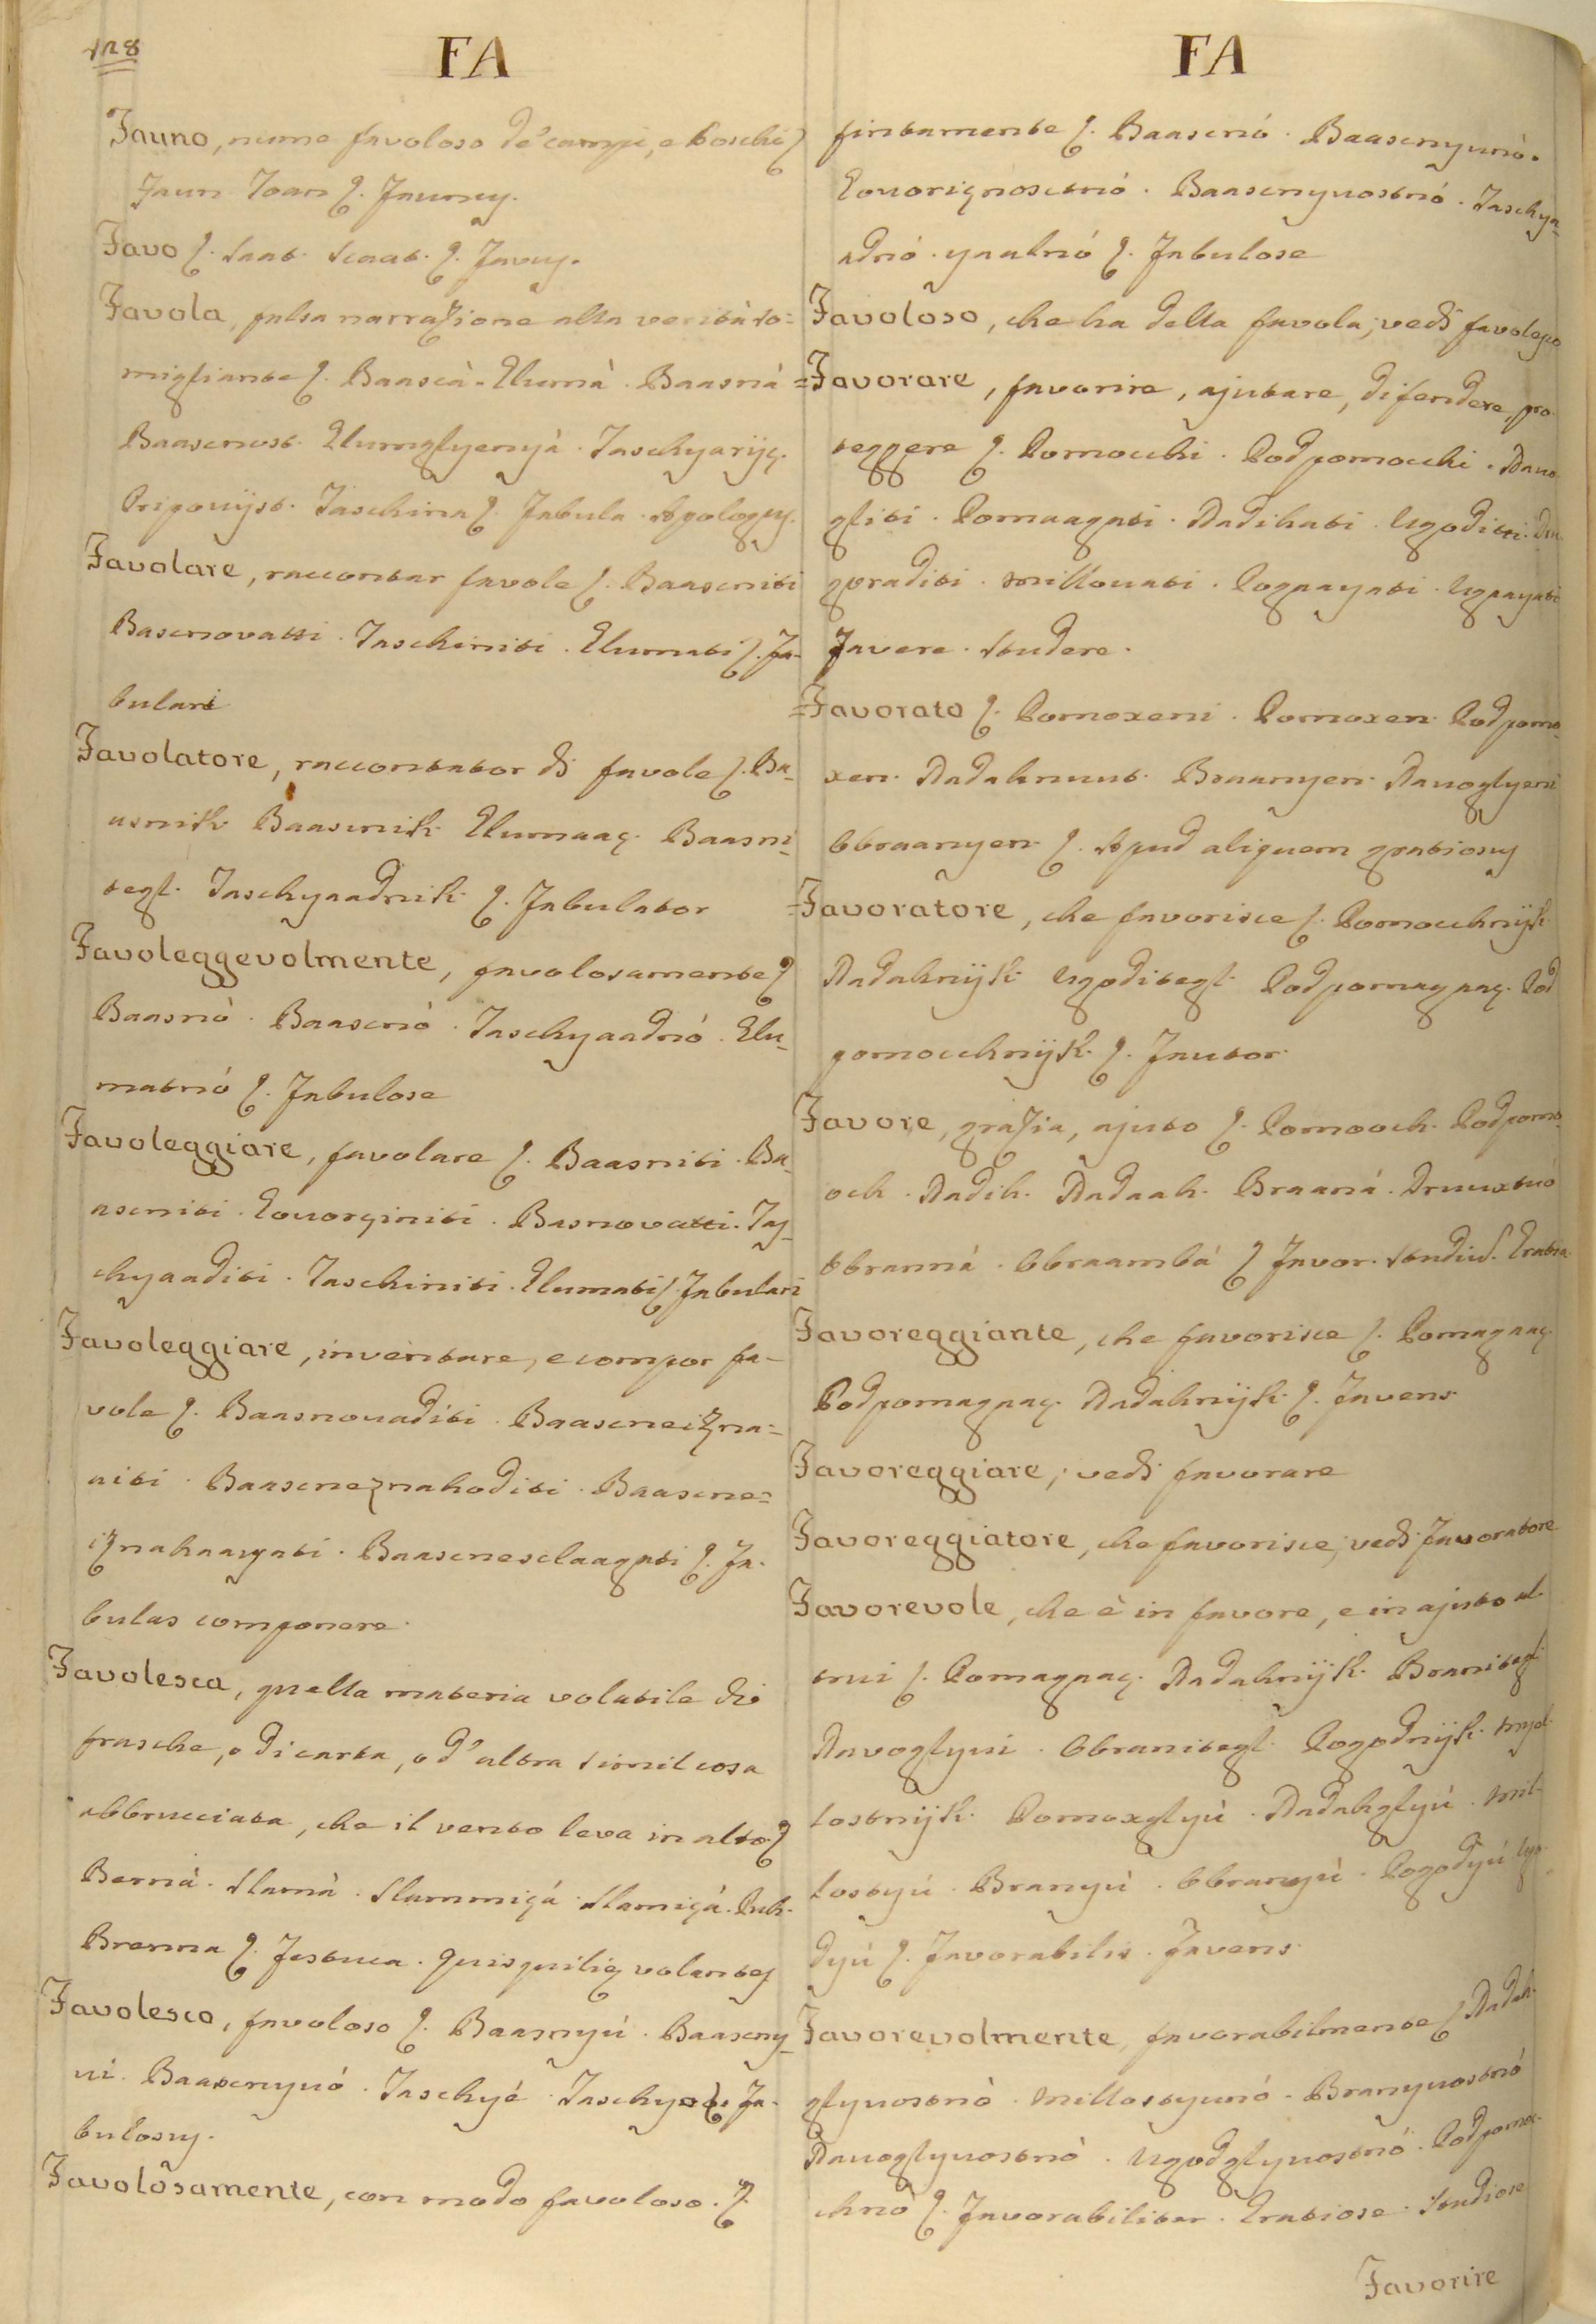 128
FA
Fauno, nume favoloso de' campi, e boschi ſ.
Faun. Ioan ſ. Faunus.
Favo ſ. Saat. Scaat. ſ. Favus.
Favola, falsa narrazione alla verità so=
migliante ſ. Baascà. Glumà. Baasnà
Baascnost. Glumglyenyà. Taschyariiç.
Pripoviist. Taschina ſ. Fabula. Apologus.
Favolare, raccontar favole ſ. Baascniti
Bascnovatti. Taschiniti. Glumati ſ. Fa-
bulari
Favolatore, raccontator di favole ſ. Ba-
asnik Baascnik Glumaaç. Baasni-
tegl. Taschyaadnik ſ. Fabulator
Favoleggevolmente, favolosamente ſ
Baasnò. Baascnò. Taschyaadnò. Glu-
matnò ſ. Fabulose
Favoleggiare, favolare ſ. Baasniti. Ba-
ascniti. Govorginiti. Basnovatti. Tas-
chyaaditi. Taschiniti. Glumati ſ. Fabulari
Favoleggiare, inventare, e compor fa-
vole ſ. Baasnovaditi. Baascneizna=
aiti. Baasceneznahoditi. Baascne=
iznahaayati. Baascnesclaagati ſ. Fa-
bulas componere.
Favolesca, quella materia volatile di
frasche, o di carta, o d'altra simil cosa
abbrucciata, che il vento leva in alto ſ
Bernà. Slamà. Slammiçà. Slamiçà. Puh.
Brenna ſ. Festuca. Quisquiliæ volantes
Favolesco, favoloso ſ. Baasnyù. Baascny-
vi. Baascnyvò. Taschyé. Taschyat ſ. Fa-
bulosus.
Favolosamente, con modo favoloso. ſ.
FA
fintamente ſ. Baascnò. Baascnyvnò.
Govorignosctnò. Baascnyvostnò. Taschya-
adnò. yaalnò ſ. Fabulose
Favoloso, che ha della favola; vedi favolesco
=Favorare, favorire, ajutare, difendere, pro-
teggere ſ. Pomocchi. Podpomocchi. Davo-
gliti. Pomaagati. Dadihati. Ugoditti. Dra-
goraditi. Millovati. Pognayati. Ugnayati
Favere. Studere.
=Favorato ſ. Pomoxeni. Pomoxen. Podpomo-
xen. Dadahnuut. Braanyen. Davoglyeni
Obraanyen. ſ. Apud aliquem gratiosus
=Favoratore, che favorisce ſ. Pomocchniik.
Dadahniik Ugoditegl. Podpomagnaç. Pod
pomocchniik. ſ. Fautor.
Favore, grazia, ajuto ſ. Pomooch. Podpomo-
och. Dadih. Dadaah. Braanà. Druuxtvò
Obrannà. Obraambà ſ Favor. Studiuſ. Gratia
Favoreggiante, che favorisce ſ. Pomagnaç.
Podpomagnaç. Dadahniik ſ. Favens.
Favoreggiare; vedi favorare
Favoreggiatore, che favorisce; vedi Favoratore
Favorevole, che è in favore, e in ajuto al-
trui ſ. Pomagnaç. Dadahniik. Branitegl.
Davoglyvi. Obranitegl. Pogodniik. Myl-
lostniik. Pomoxglyù. Dadahglyù. Mil-
lostyù. Branyù. Obranyù. Pogodyù Ugo-
dyù ſ. Favorabilis. Favens.
Favorevolmente, favorabilmente ſ Dadah-
glyvostnò. Millostyvnò. Branyvostnò
Davoglyvostnò. Ugodglyvostnò. Podpomoc-
chnò ſ. Favorabiliter. Gratiose. Studiose
Favorire